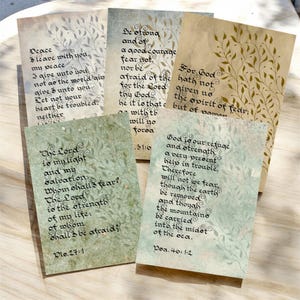 Peace
I leave with you,
my peace
I give unto you
not as the world giv
give I unto you.
Let not your
heart be troubled,
neither
Be strong
and of
a good courage
fear not,
nor be
afraid of th
for the Lord
thy God
he it is that
go with
will no
forsa
31:6
For God
hath not
given us
the spirit of fear;
but of power
The Lord
is my light
and my
salvation;
Whom shall I fear?
The Lord
is the strength
of my life;
of whom
shall I be afraid?
Psa. 27:1
God is our refuge
and strength,
a very present
help in trouble.
Therefore
will not we fear,
though the earth
be removed
and though
the mountains
be carried
into the midst
of the sea.
Psa. 46:1-2